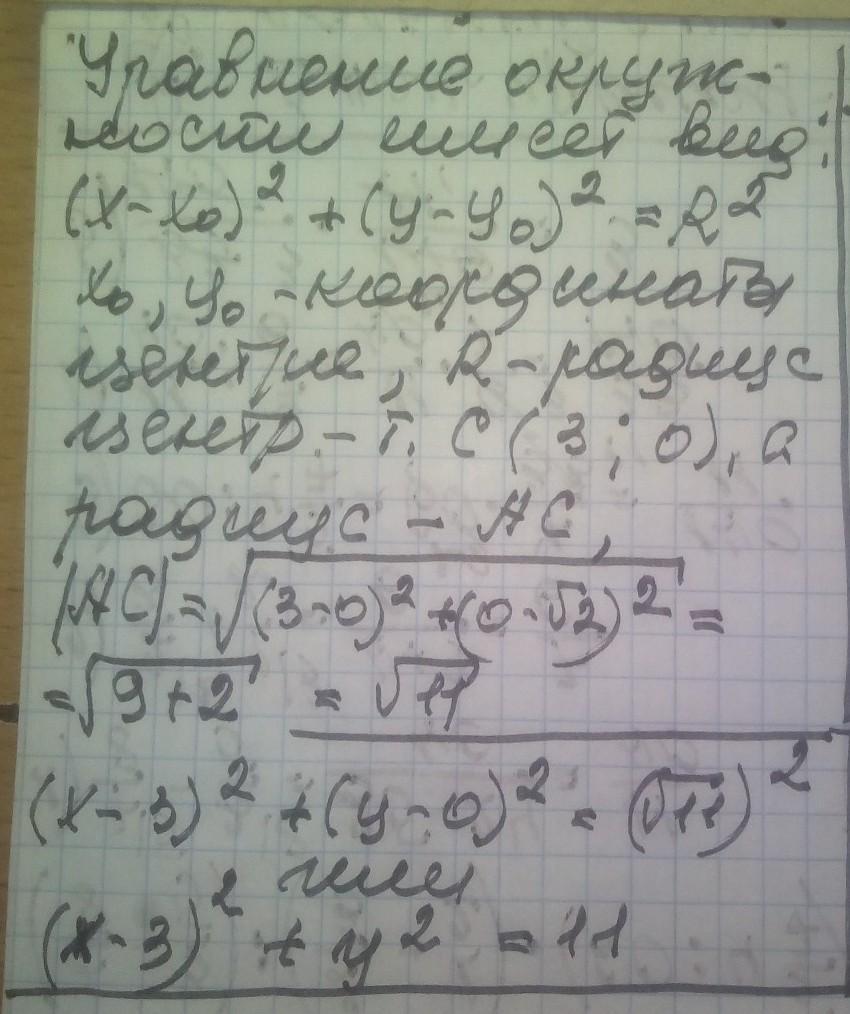 Уравнение окруж-
ности имеет вид:
(x-x₀)² + (y-y₀)² = R²
x₀, y₀ - координаты
центре, R - радиус
центр - т. C (3; 0), а
радиус - AC,
|AC| = √((3-0)² + (0-√2)²) =
= √(9+2) = √11
(x-3)² + (y-0)² = (√11)²
или
(x-3)² + y² = 11